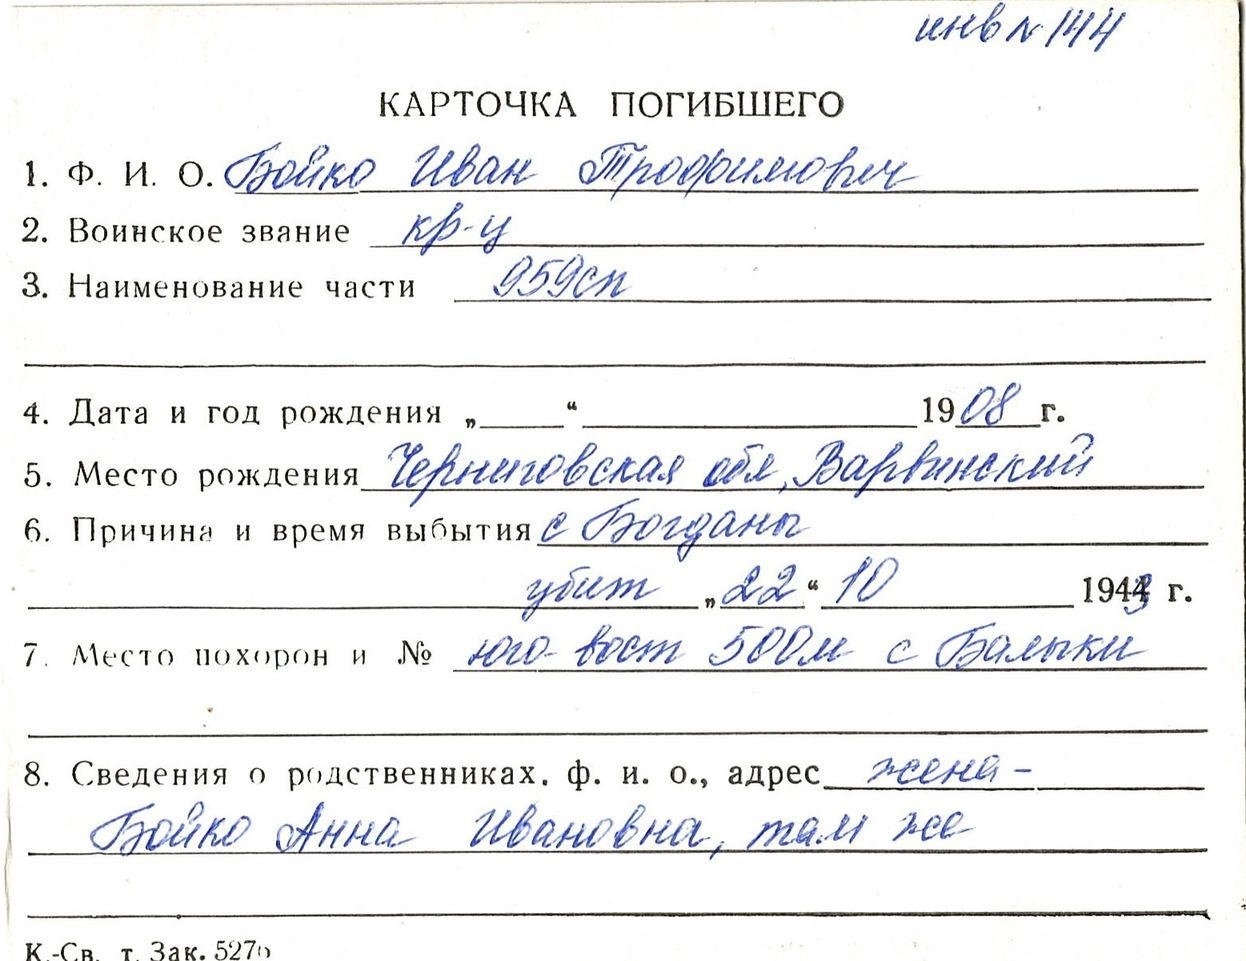 инв № 144
КАРТОЧКА ПОГИБШЕГО
1. Ф. И. О. Бойко Иван Трофимович
2. Воинское звание кр-ц
3. Наименование части 959сп
4. Дата и год рождения „ “ 1908 г.
5. Место рождения Черниговская обл, Варвинский
6. Причина и время выбытия с Богданы
убит „22“ 10 1943 г.
7. Место похорон и № юго-вост 500м с Балыки
8. Сведения о родственниках. ф. и. о., адрес жена-
Бойко Анна Ивановна, там же
К.-Св. т. Зак. 527